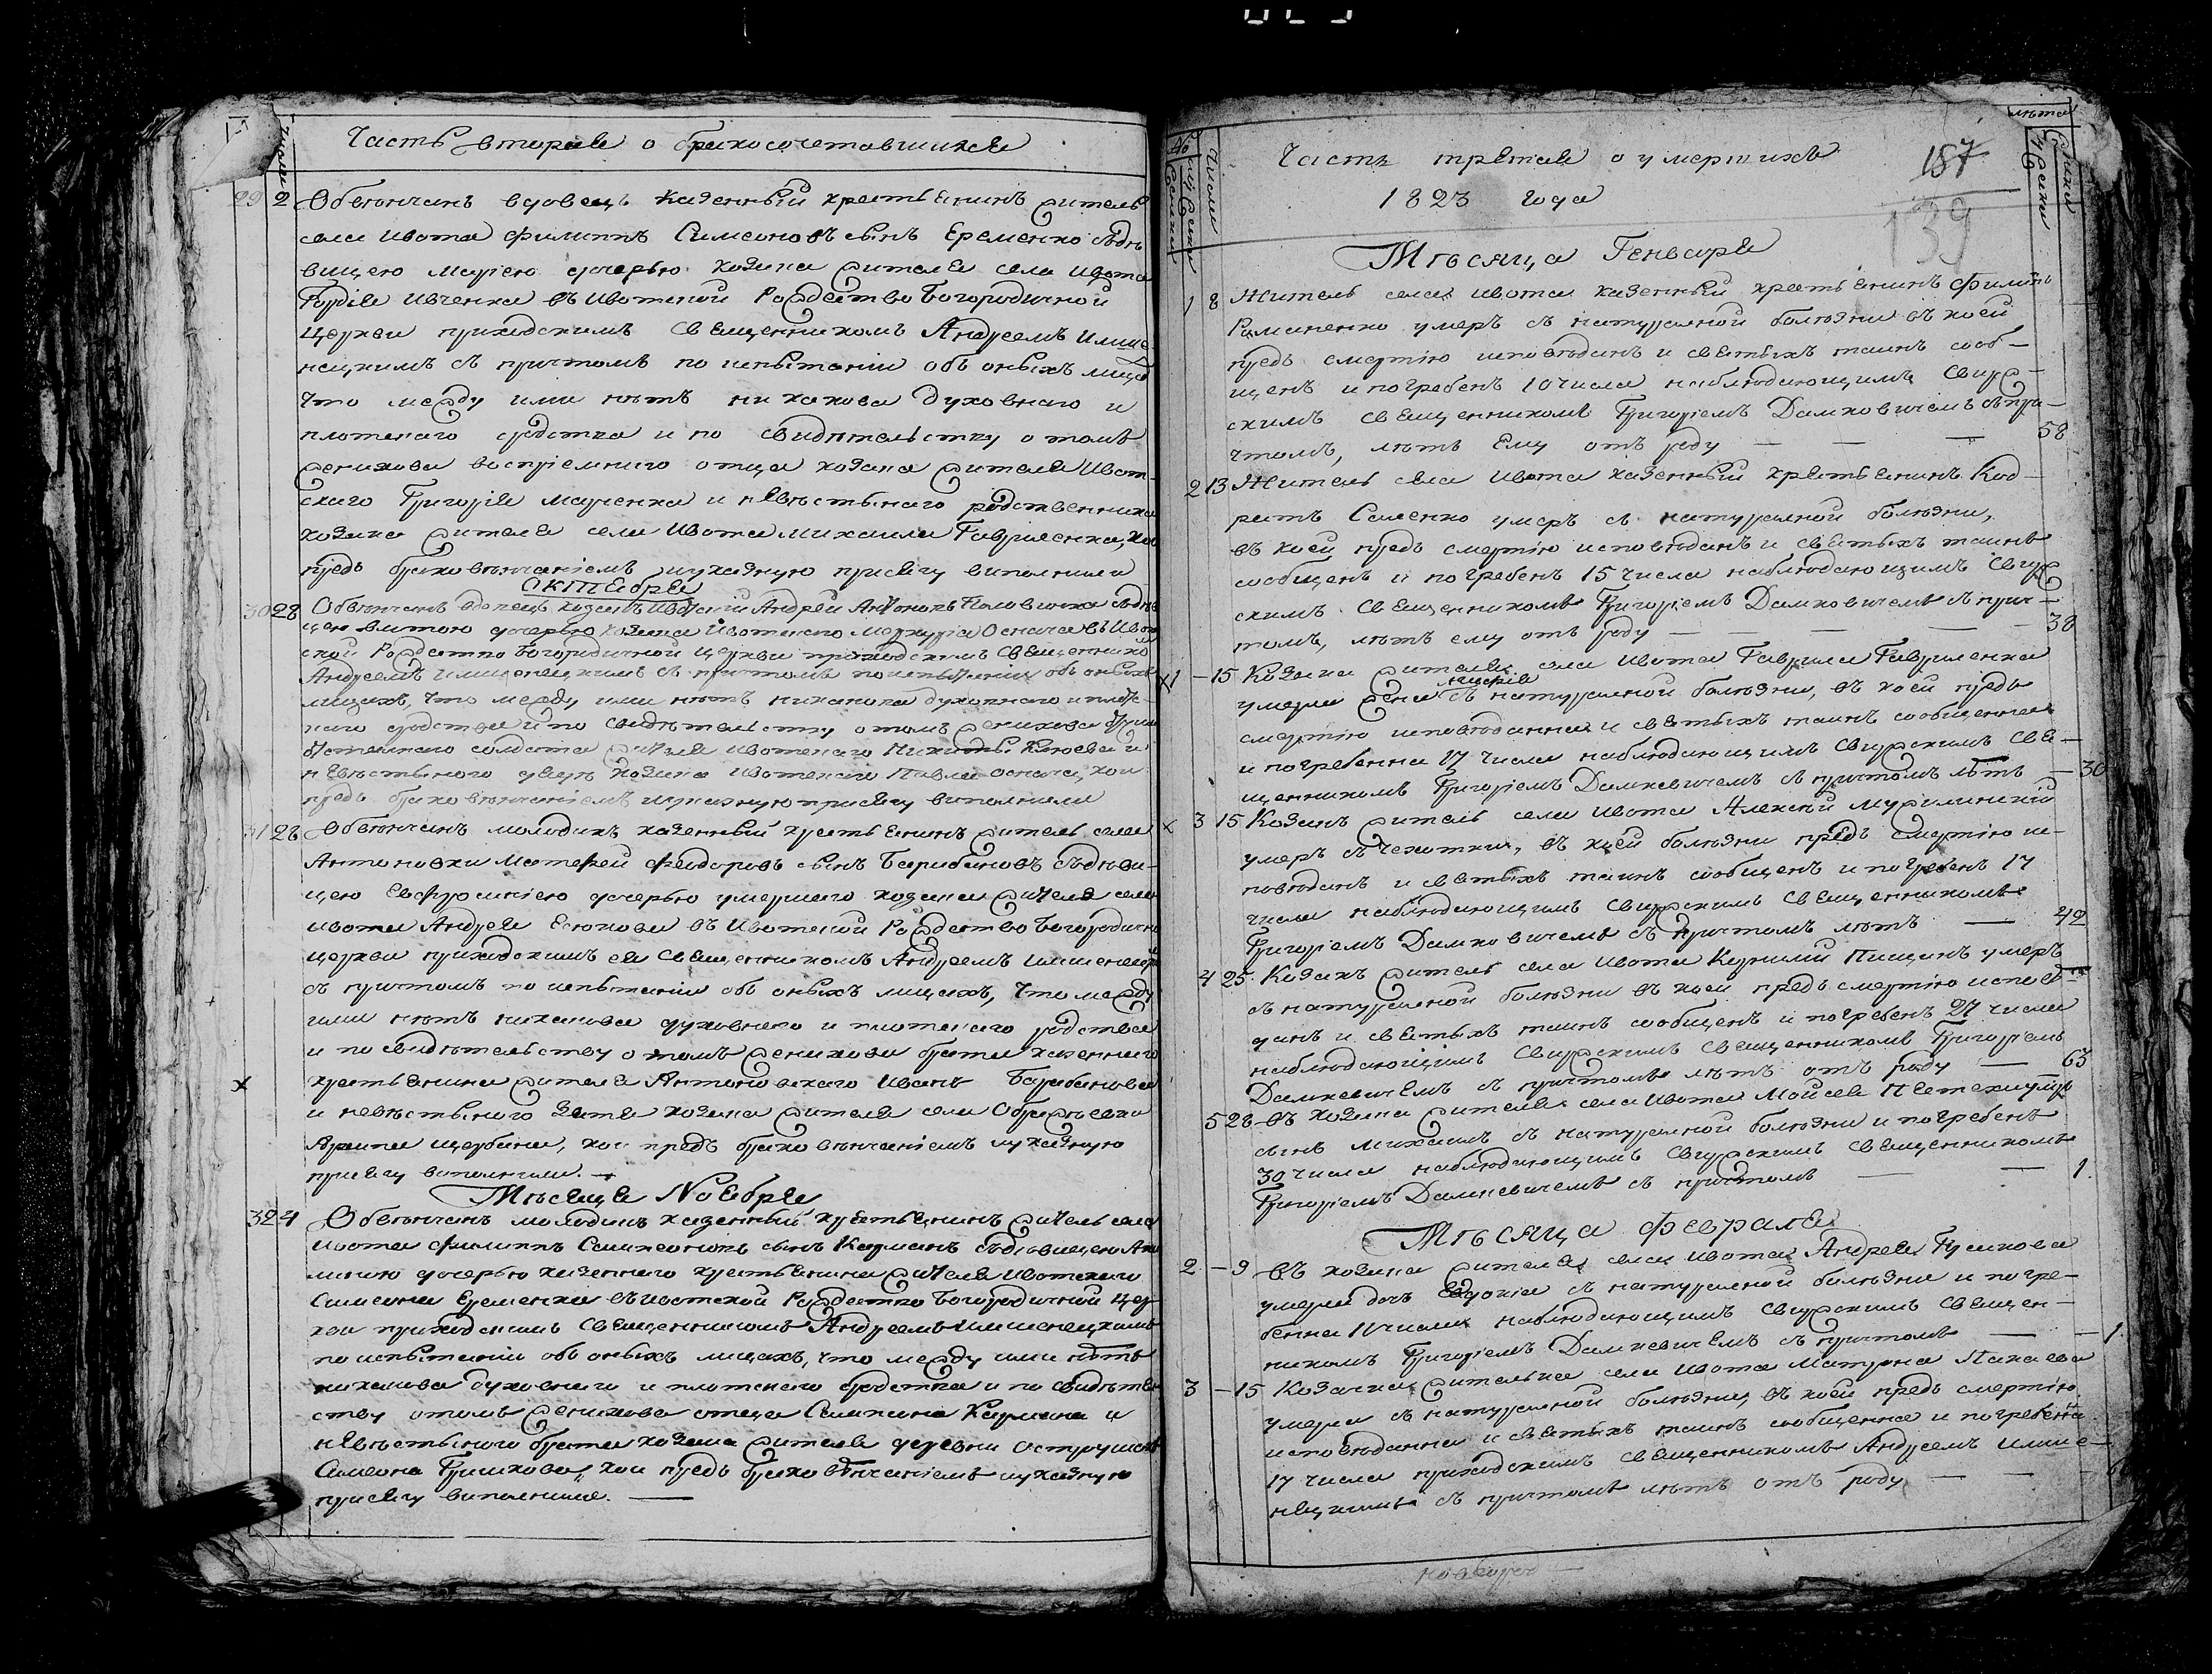 Часть вторая о бракосочетавшихся
29 2 Обвѣнчанъ вдовецъ казенный крестьянинъ житель
села Ивота Филиппъ Симеоновъ сынъ Еременко съ дѣ
вицею Маріею дочерью козака жителя села Ивота
Гордѣя Ивченка въ Ивотской Рождество Богородичной
Церкви приходскимъ Священникомъ Андреемъ Илише
нецкимъ съ причтомъ по испытаніи объ оныхъ лицахъ
что между ими нѣтъ никакова духовнаго и
плотскаго сродства и по свидѣтельству о томъ
женихова воспріемнаго отца козака жителя Ивот-
скаго Григорія Марченка и невѣстынаго родственника
козака жителя села Ивота Михаила Гавриленка, кои
предъ браковѣнчаніемъ указную присягу виполнили
Октября
30 28 Обвѣнчанъ вдовецъ козакъ Ивотскій Андрей Антоновъ съ дѣви
цею дочерью козака Ивотскаго Меркурія Оснача въ Ивот
ской Рождество Богородичной Церкви приходскимъ Священнико
Андреемъ съ причтомъ по испытаніи объ оныхъ
лицахъ, что между ими нѣтъ никакова духовнаго и плотс-
каго сродства и по свидѣтельству о томъ женихова
солдата жителя Ивотскаго Никиты Клюева и
невѣстынаго дяди козака Ивотскаго Павла Осначи, кои
предъ браковѣнчаніемъ указную присягу виполнили
31 28 Обвѣнчанъ молодикъ казенный крестьянинъ житель села
Антоновки Матфей Феодоровъ сынъ Барабановъ съ дѣви-
цею Евфросиніею дочерью умершаго козака жителя села
Ивота Андрея Есюкова въ Ивотской Рождество Богородичн
церкви приходскимъ ея Священникомъ Андреемъ
съ причтомъ по испытаніи объ оныхъ лицахъ, что между
ими нѣтъ никакова духовнаго и плотскаго родства
и по свидѣтельству о томъ женихова брата казеннаго
х крестьянина жителя Антоновскаго Ивана Барабанова
и невѣстынаго зятя козака жителя села Ображѣевки
Щербини, кои предъ браковѣнчаніемъ указную
присягу виполнили.
Мѣсяца Ноября
32 4 Обвѣнчанъ молодикъ казенный крестьянинъ житель села
Ивота Филиппъ сынъ Карманъ съ дѣвицею Аки
линою дочерью казеннаго крестьянина жителя Ивотскаго
Симеона Еременка въ Ивотской Рождество Богородичной цер
кви приходскимъ Священникомъ Андреемъ Илишенецкимъ
по испытаніи объ оныхъ лицахъ, что между ими нѣтъ
никакова духовнаго и плотскаго сродства и по свидѣтель
ству о томъ женихова отца Кармана и
невѣстынаго брата козака жителя деревни
Симеона Гришкова, кои предъ браковѣнчаніемъ указную
присягу виполнили.
Часть третая о умершихъ
1823 года
187
139
Числа
Мѣсяца Генваря
1 8 Житель села Ивота казенный крестьянинъ Филиппъ
Романенко умеръ съ натуралной болѣзни въ коей
предъ смертію исповѣданъ и святыхъ таинъ сооб-
щенъ и погребенъ 10 числа наблюдающимъ Свирж-
скимъ священникомъ Григоріемъ Дамковичемъ съ при-
чтомъ, лѣтъ ему отъ роду — 58
2 13 Житель села Ивота казенный крестьянинъ Код-
ратъ Саленко умеръ съ натуралной болѣзни,
въ коей предъ смертію исповѣданъ и святыхъ таинъ
сообщенъ и погребенъ 15 числа наблюдающимъ Свирж
скимъ Священникомъ Григоріемъ Дамковичемъ съ прич-
томъ, лѣтъ ему отъ роду — 38
х 1 - 15 Козака жителя села Ивота Гаврила Гавриленка
умерла жена съ натуралной болѣзни, въ коей предъ
смертію исповѣданна и святыхъ таинъ сообщенна
и погребенна 17 числа наблюдающимъ Свиржскимъ Свя-
щенникомъ Григоріемъ Дамкевичемъ съ причтомъ лѣтъ — 30
х 3 15 Козакъ житель села Ивота Алексѣй
умеръ съ чехотки, въ коей болѣзни предъ смертію ис-
повѣданъ и святыхъ таинъ сообщенъ и погребенъ 17
числа наблюдающимъ Свиржскимъ Священникомъ
Григоріемъ Дамковичемъ съ причтомъ лѣтъ — 42
4 25 Козакъ житель села Ивота Корнилій Пищикъ умеръ
съ натуралной болѣзни въ коей предъ смертію исповѣ
данъ и святыхъ таинъ сообщенъ и погребенъ 27 числа
наблюдающимъ Свиржскимъ Священникомъ Григоріемъ
Дамкевичемъ съ причтомъ лѣтъ отъ роду — 63
5 28 въ козака жителя села Ивота Моисея умре
сынъ Михаилъ съ натуралной болѣзни и погребенъ
30 числа наблюдающимъ Свиржскимъ Священникомъ
Григоріемъ Дамкевичемъ съ причтомъ — 1
Мѣсяца Февраля
2 - 9 въ козака жителя села Ивота Андрея Гришкова
умерла дочь Евдокія съ натуралной болѣзни и погре-
бенна 11 числа наблюдающимъ Свиржскимъ Священ-
никомъ Григоріемъ Дамкевичемъ съ причтомъ — 1
3 - 15 Козачка жителька села Ивота Матрона
умерла съ натуралной болѣзни, въ коей предъ смертію
исповѣданна и святыхъ таинъ сообщенна и погребенна
17 числа приходскимъ священникомъ Андреемъ Илише-
нецкимъ съ причтомъ лѣтъ отъ роду